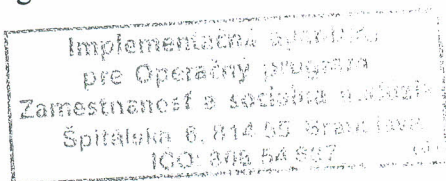 Implementačná agentúra
pre Operačný program
Zamestnanosť a sociálna inklúzia
Špitálska 6, 814 55 Bratislava
IČO: 305 54